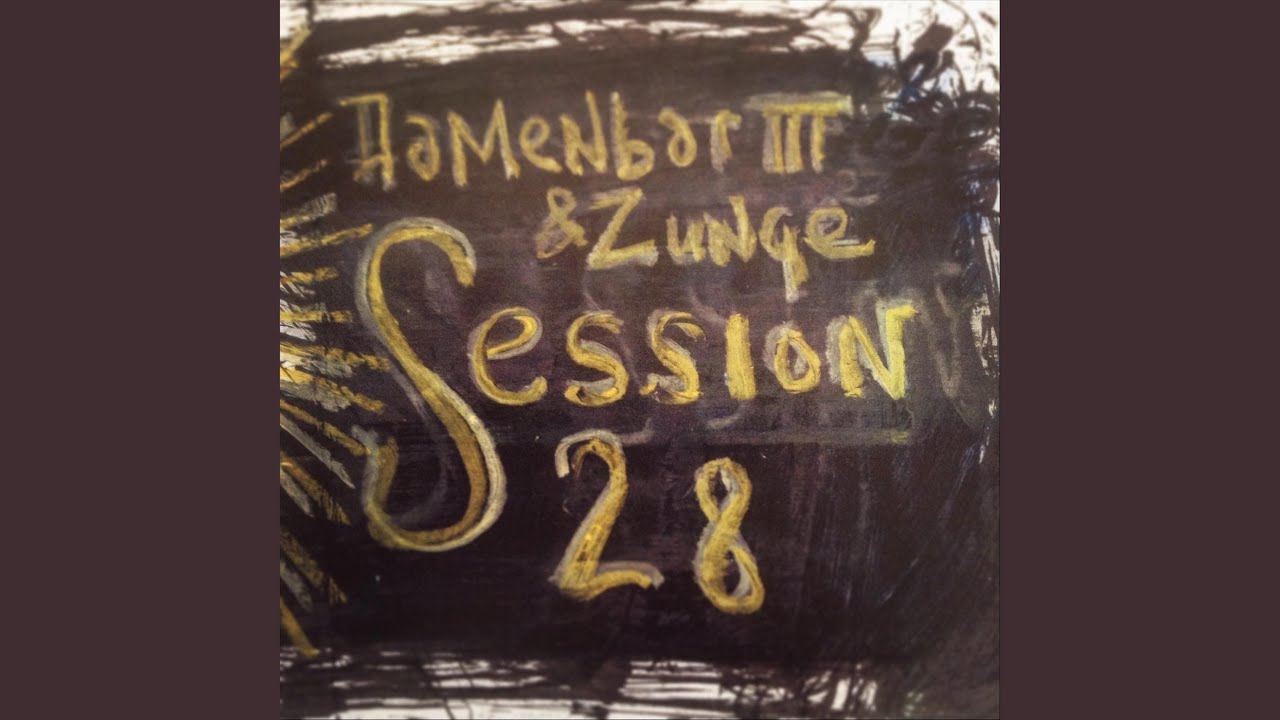 Damenbar III
& Zunge
Session
28